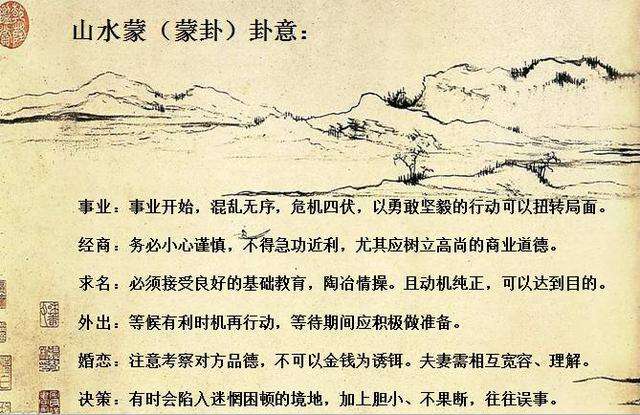 山水蒙（蒙卦）卦意：
事业：事业开始，混乱无序，危机四伏，以勇敢坚毅的行动可以扭转局面。
经商：务必小心谨慎，不得急功近利，尤其应树立高尚的商业道德。
求名：必须接受良好的基础教育，陶冶情操。且动机纯正，可以达到目的。
外出：等候有利时机再行动，等待期间应积极做准备。
婚恋：注意考察对方品德，不可以金钱为诱饵。夫妻需相互宽容、理解。
决策：有时会陷入迷惘困顿的境地，加上胆小、不果断，往往误事。